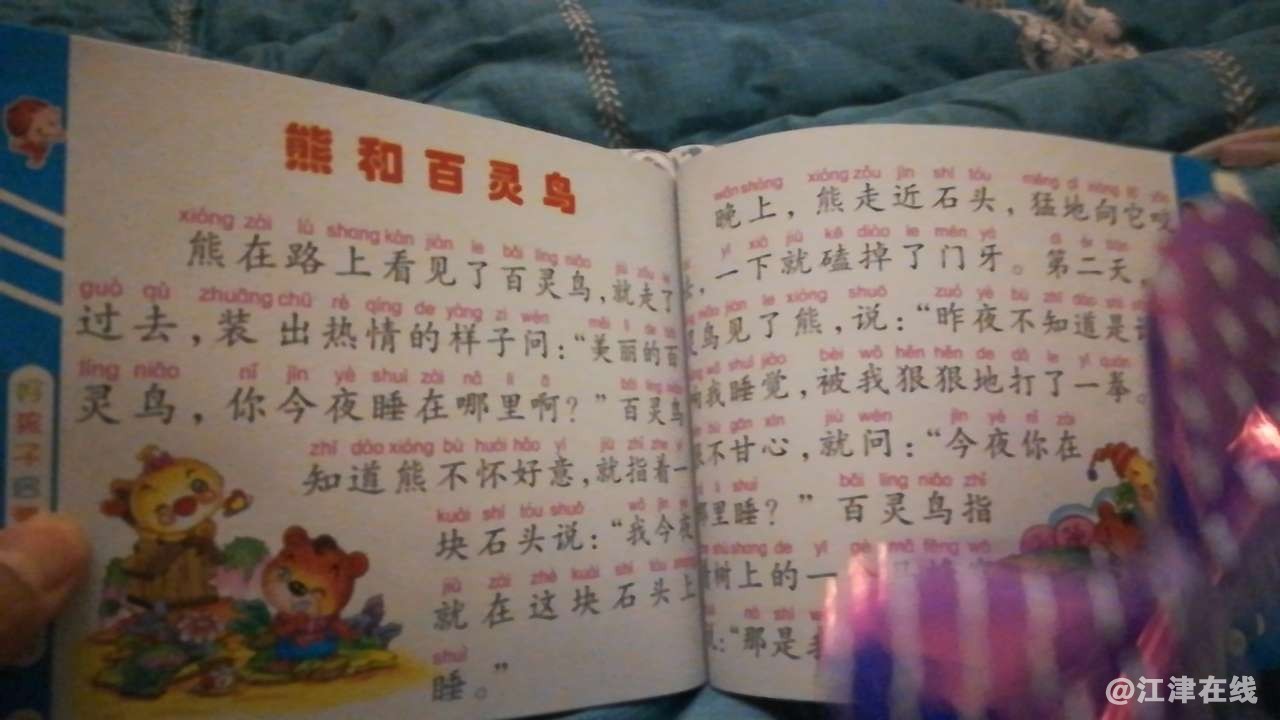 熊和百灵鸟
xióng zài lù shang kàn jiàn le bǎi líng niǎo jiù zǒu le
熊在路上看见了百灵鸟，就走了
guò qù zhuāng chū rè qíng de yàng zi wèn měi lì de bǎi
过去，装出热情的样子问：“美丽的百
líng niǎo nǐ jīn yè shuì zài nǎ li a bǎi líng niǎo
灵鸟，你今夜睡在哪里啊？”百灵鸟
zhī dào xióng bù huái hǎo yì jiù zhǐ zhe yí
知道熊不怀好意，就指着一
kuài shí tóu shuō wǒ jīn yè
块石头说：“我今夜
jiù zài zhè kuài shí tóu shang
就在这块石头上
shuì
睡。”
wǎn shàng xióng zǒu jìn shí tóu měng de xiàng tā
晚上，熊走近石头，猛地向它咬
yí xià jiù kē diào le mén yá dì èr tiān
，一下就磕掉了门牙。第二天，
niǎo jiàn le xióng shuō zuó yè bù zhī dào shì
灵鸟见了熊，说：“昨夜不知道是
wǒ shuì jiào bèi wǒ hěn hěn de dǎ le yì quán
我睡觉，被我狠狠地打了一拳。
bù gān xīn jiù wèn jīn yè nǐ zài
不甘心，就问：“今夜你在
li shuì bǎi líng niǎo zhǐ
哪里睡？”百灵鸟指
shù shang de yí gè mǎ fēng wō
树上的一
nà shì
：“那是我
好孩子
@江津在线